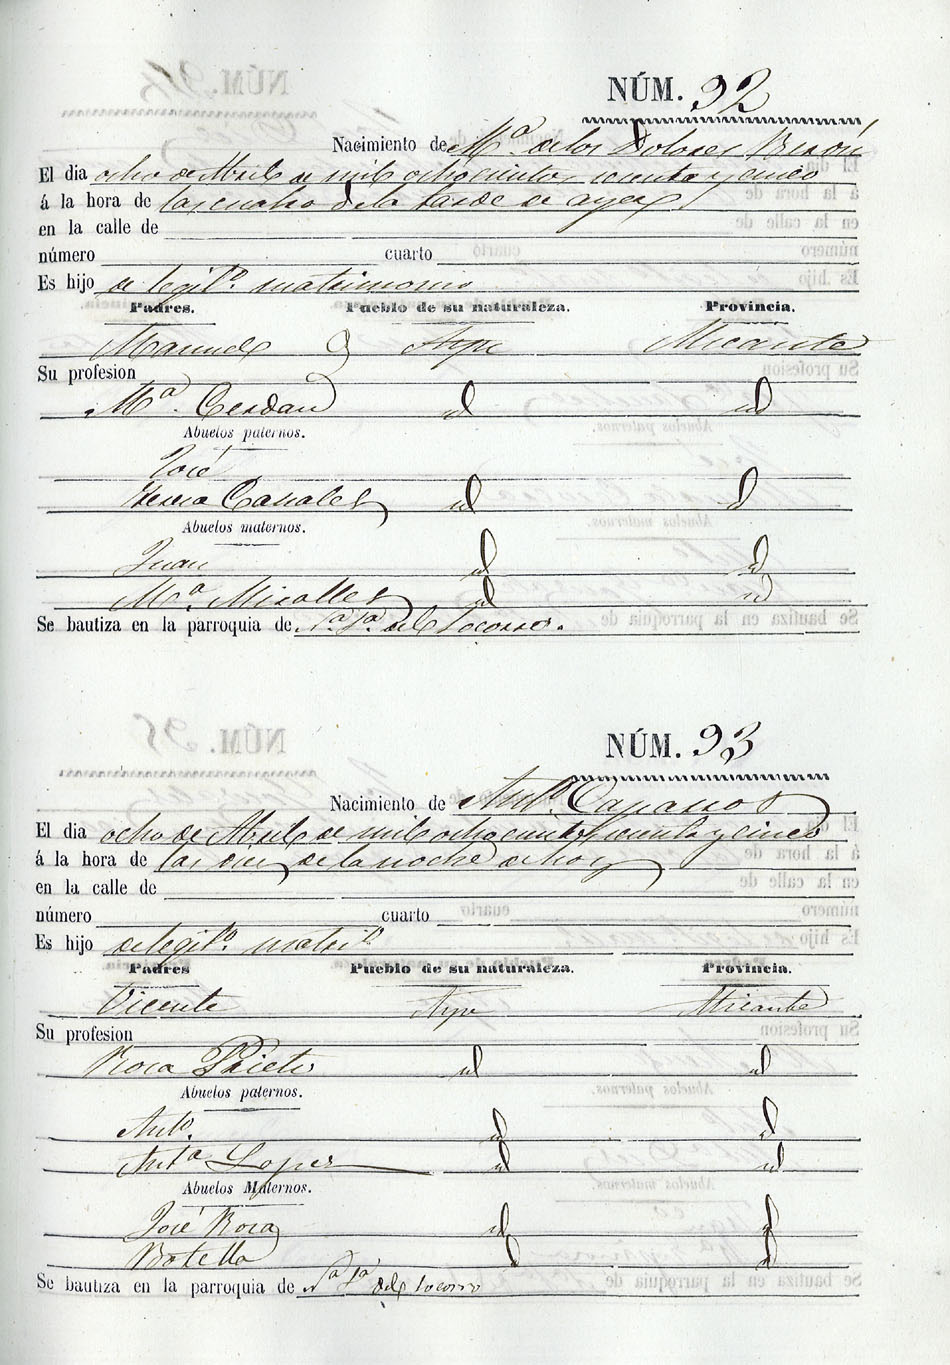 NÚM. 92
Nacimiento de Mª. de los Dolores
El dia ocho de Abril de mil ochocientos sesenta y cinco
á la hora de las cuatro de la tarde de ayer
en la calle de
número cuarto
Es hijo de legitº. matrimonio
Padres. Pueblo de su naturaleza. Provincia.
Manuel Aspe Alicante
Su profesion
Mª. Cerdan id id
Abuelos paternos.
José
Teresa Canales id id
Abuelos maternos.
Juan id id
Mª. Miralles id id
Se bautiza en la parroquia de Nª. Sª. del Socorro.
NÚM. 93
Nacimiento de Antº.
El dia ocho de Abril de mil ochocientos sesenta y cinco
á la hora de las de la noche de hoy
en la calle de
número cuarto
Es hijo de legitº. matriº.
Padres Pueblo de su naturaleza. Provincia.
Vicente Aspe Alicante
Su profesion
Rosa Prieto id id
Abuelos paternos.
Antº. id id
Antª. Lopez id id
Abuelos Maternos.
José Rosa id id
Botella id id
Se bautiza en la parroquia de Nª Sª del Socorro